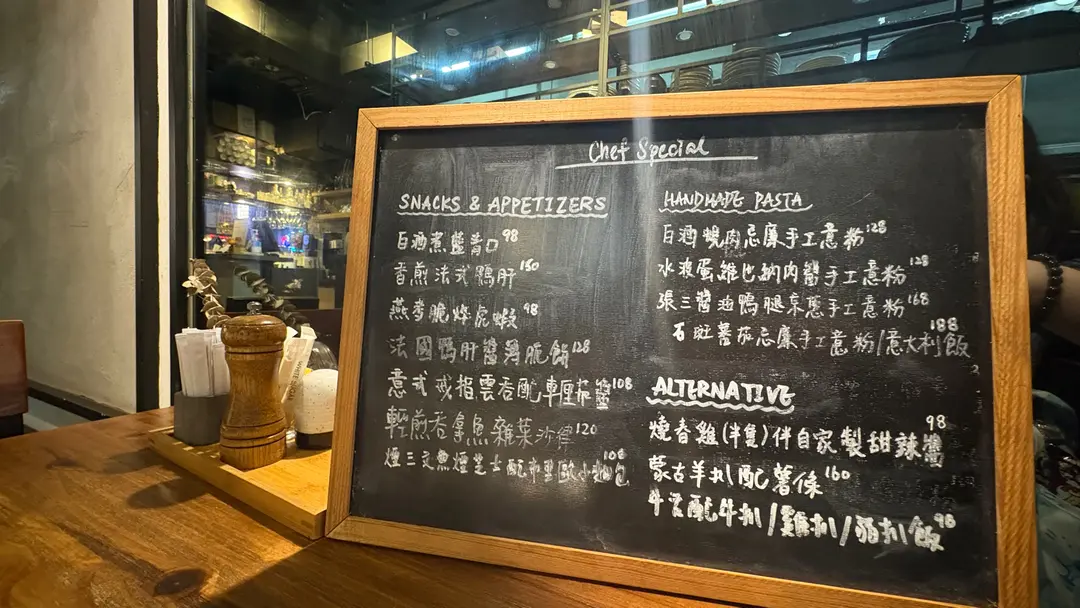 Chef Special
SNACKS & APPETIZERS
白酒煮藍青口 98
香煎法式鴨肝 150
燕麥脆炸虎蝦 98
法國鴨肝醬薄脆餅 128
意式戒指雲吞配車厘茄醬 108
輕煎吞拿魚雜菜沙律 120
煙三文魚煙芝士配 包 108
HANDMADE PASTA
白酒蜆肉忌廉手工意粉 128
水波蛋維也納肉醬手工意粉 128
張三醬油鴨腿 手工意粉 168
石斑蕃茄忌廉手工意粉/意大利飯 188
ALTERNATIVE
燒春雞(半隻)伴自家製甜辣醬 98
蒙古羊扒配薯條 160
配牛扒/雞扒/豬扒飯 98